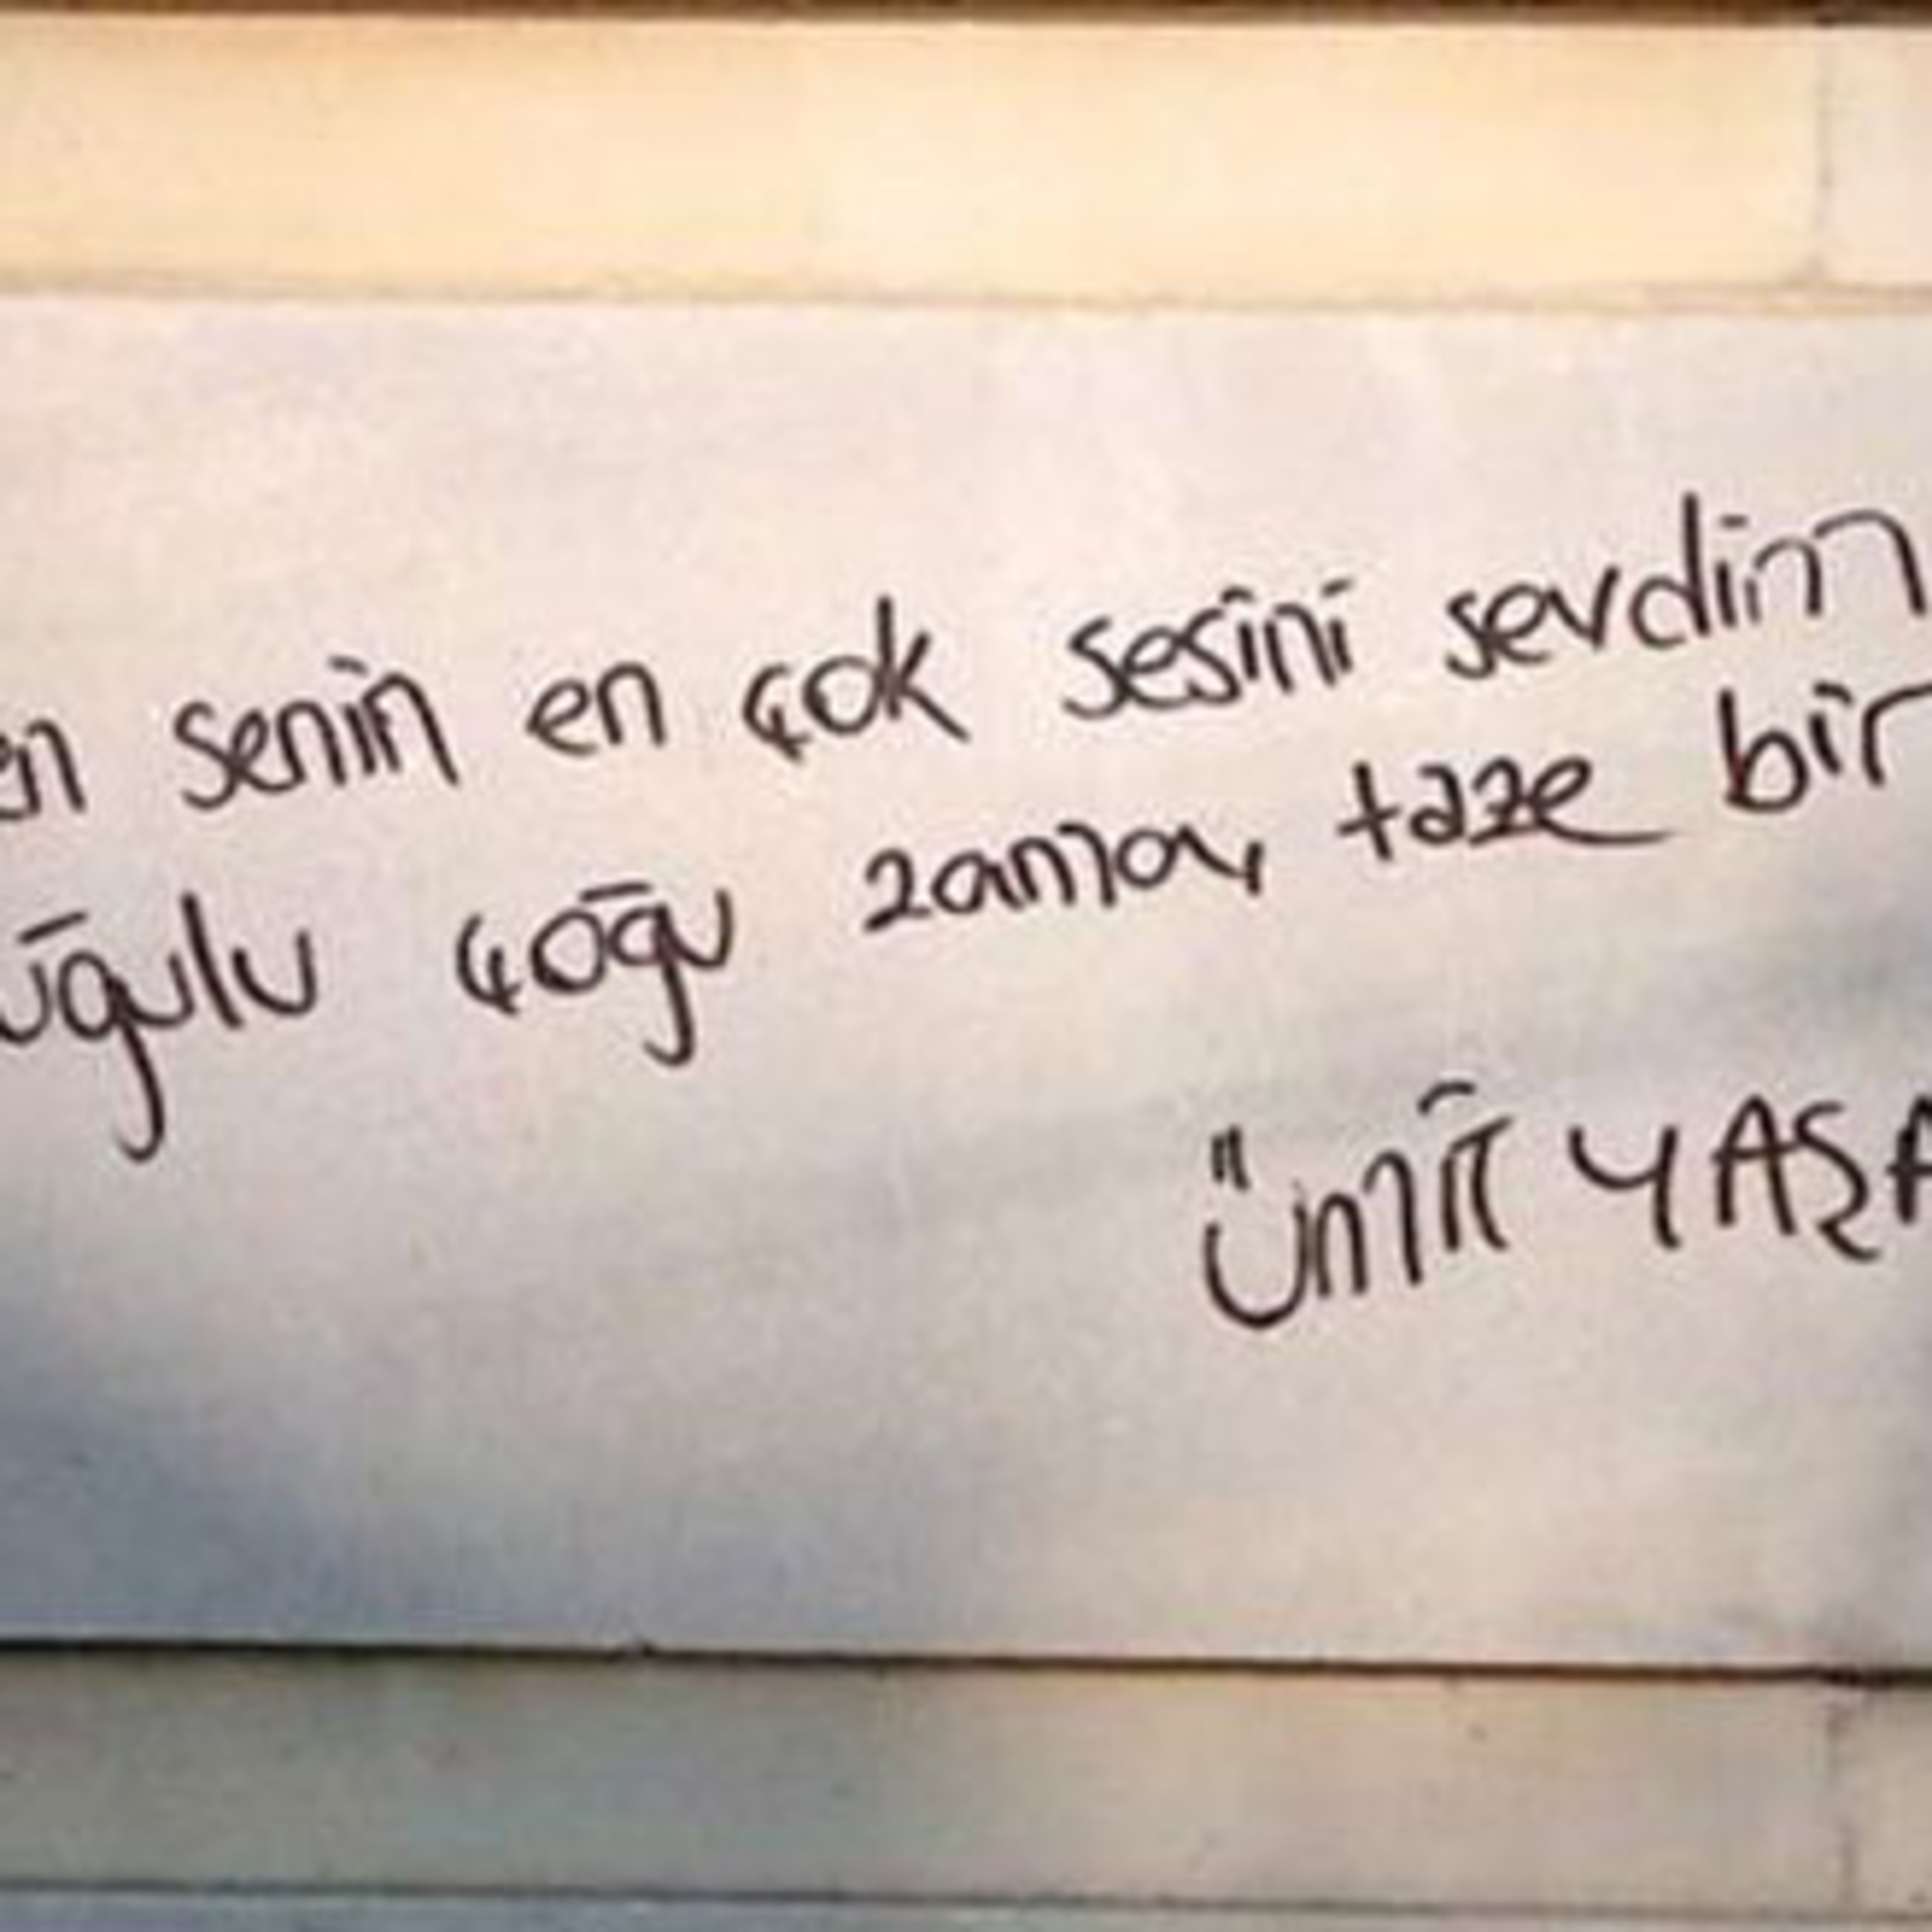 en senin en çok sesini sevdim
uğulu çoğu zaman, taze bir
ÜMİT YAŞA